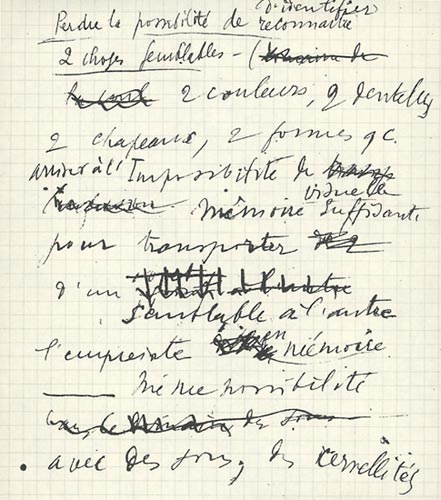 d'identifier
Perdre la possibilité de reconnaitre
2 choses semblables -
2 couleurs, 2 dentelles
2 chapeaux, 2 formes qc.
arriver à l'Impossibilité de
mémoire visuelle suffisante
pour transporter
d'un
semblable à l'autre
l'empreinte en mémoire.
Même possibilité
avec des sons, des cervellités